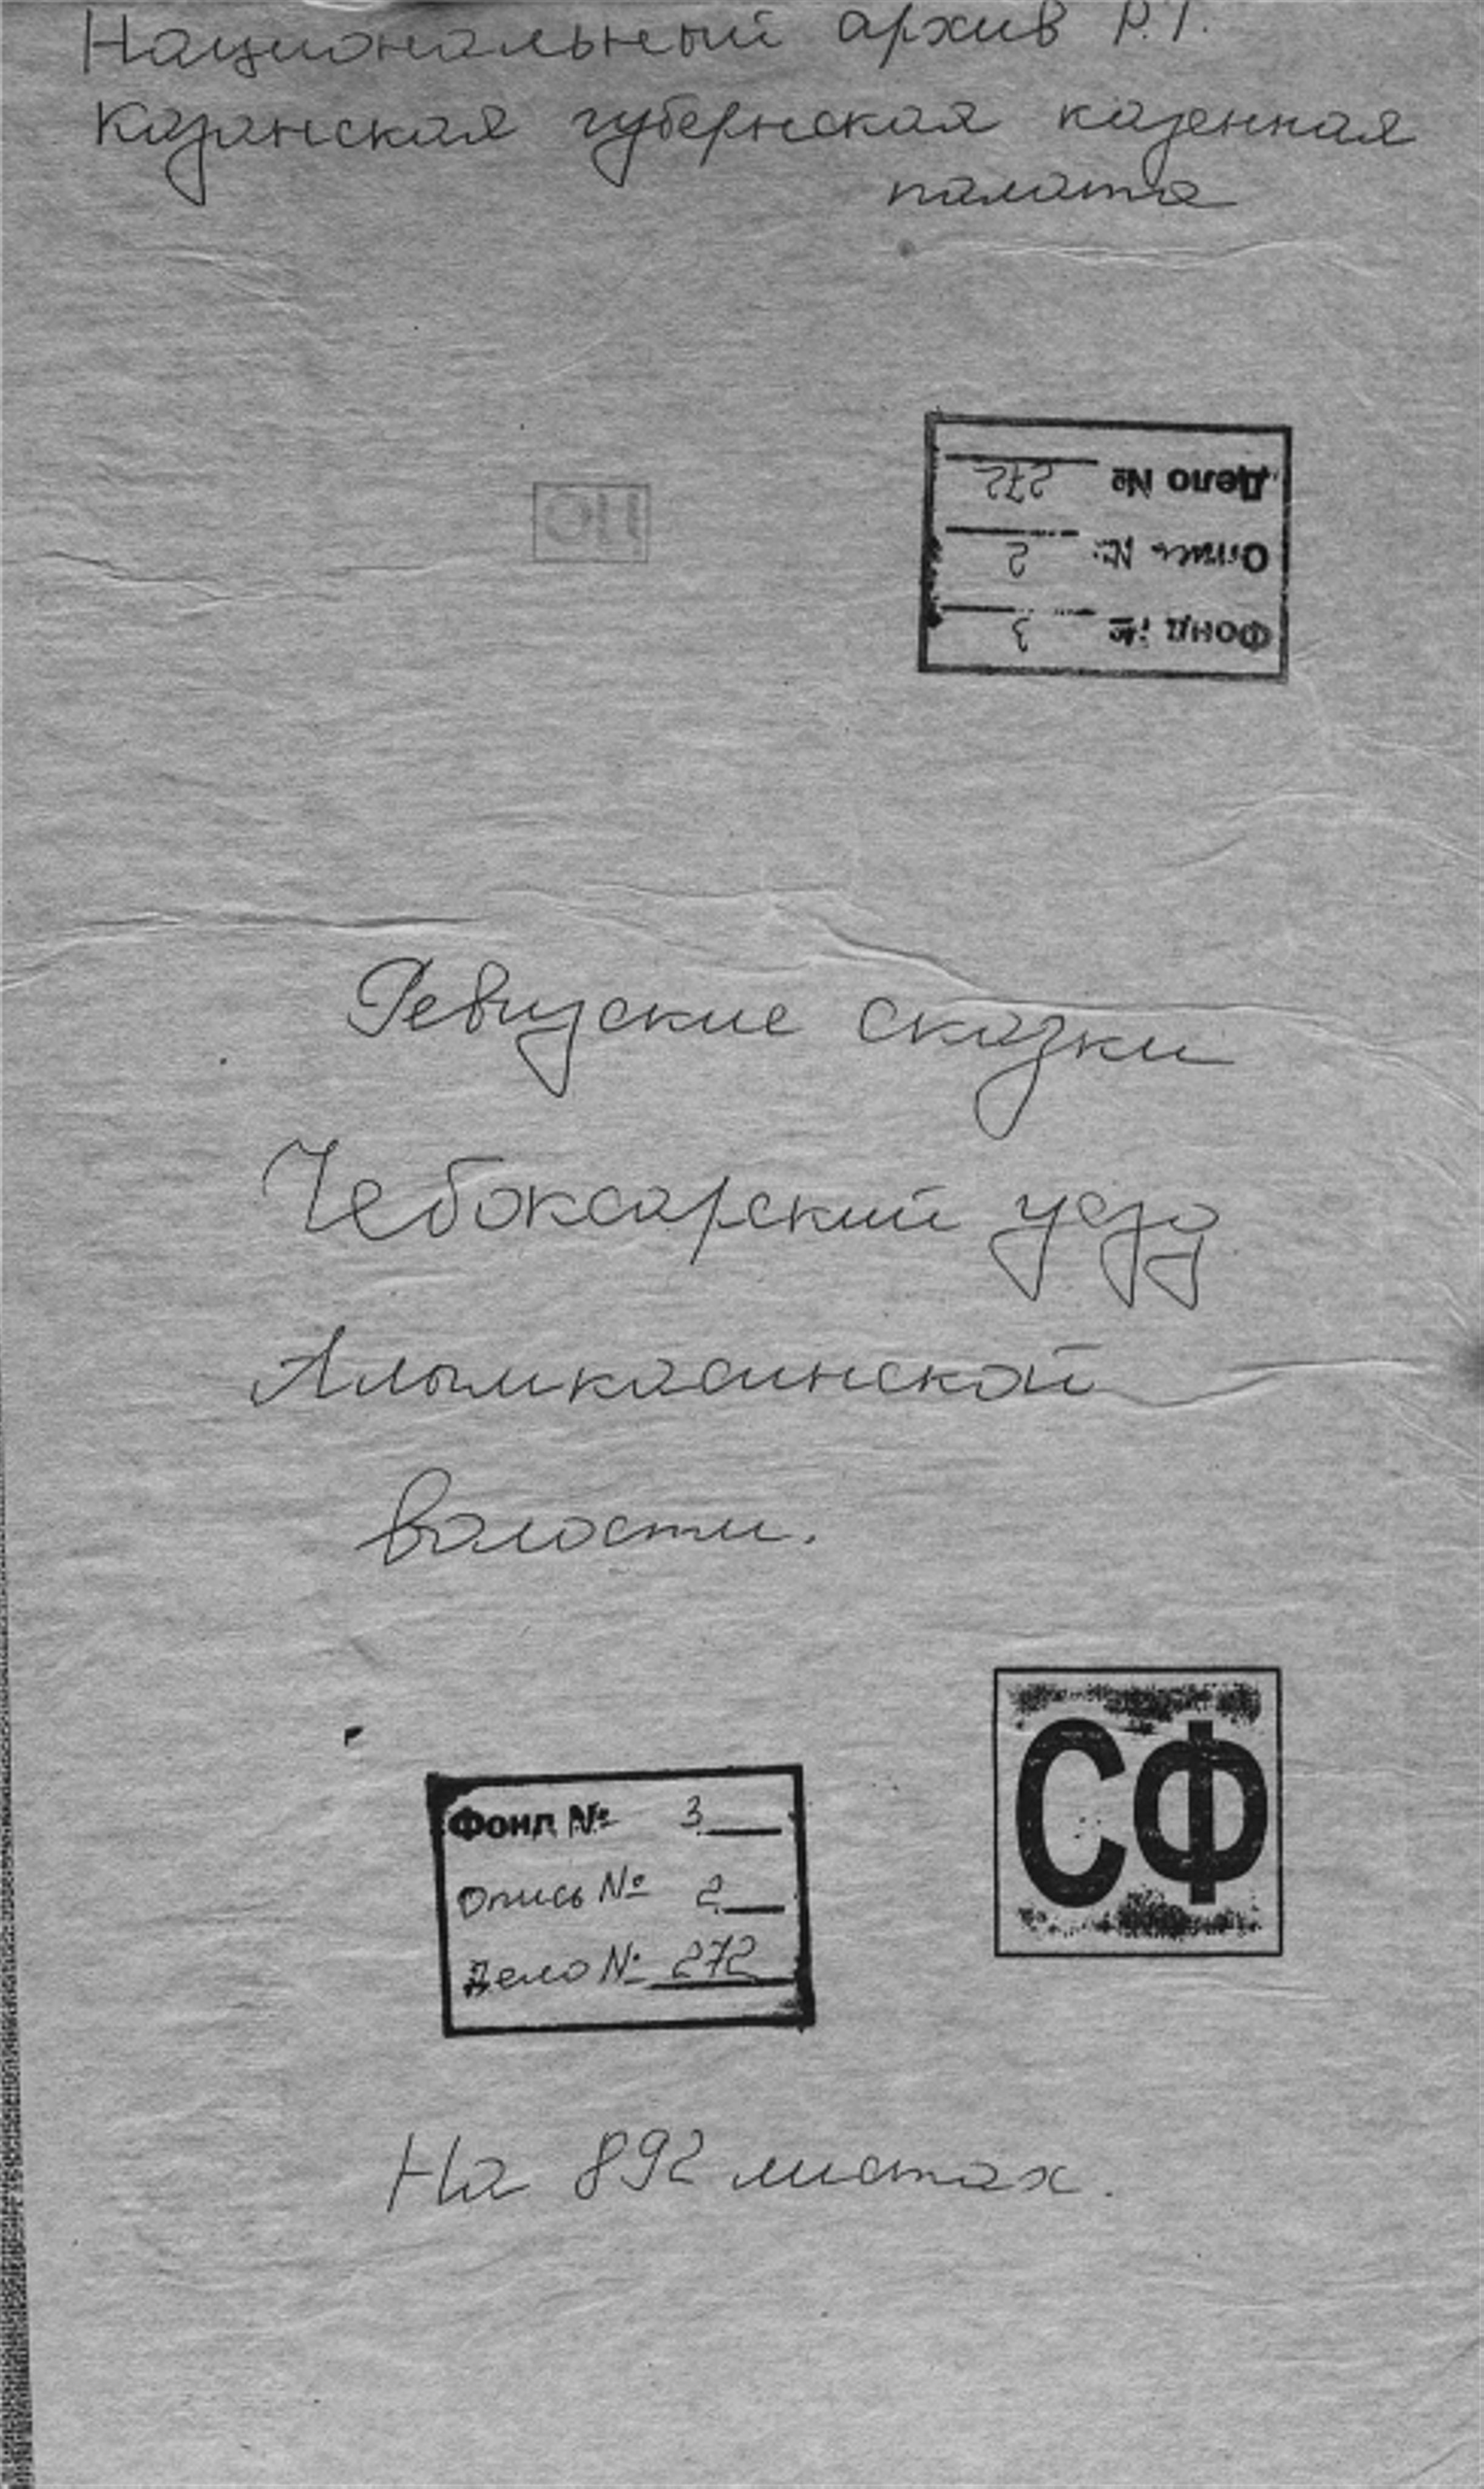 Национальный архив Р.Т.
Казанская губернская казенная
палата
Дело № 272
Опись № 2
Фонд № 3
Ревизские сказки
Чебоксарский уезд
Алымкасинской
волости.
СФ
Фонд № 3
Опись № 2
Дело № 272
На 892 листах.